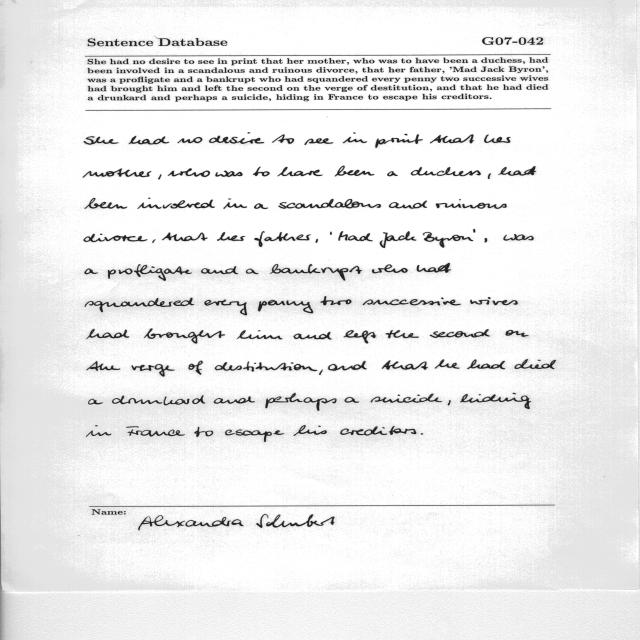 Sentence Database G07-042
She had no desire to see in print that her mother, who was to have been a duchess, had
been involved in a scandalous and ruinous divorce, that her father, 'Mad Jack Byron',
was a profligate and a bankrupt who had squandered every penny two successive wives
had brought him and left the second on the verge of destitution, and that he had died
a drunkard and perhaps a suicide, hiding in France to escape his creditors.
She had no desire to see in print that her
mother, who was to have been a duchess, had
been involved in a scandalous and ruinous
divorce, that her father, 'Mad Jack Byron', was
a profligate and a bankrupt who had
squandered every penny two successive wives
had brought him and left the second on
the verge of destitution, and that he had died
a drunkard and perhaps a suicide, hiding
in France to escape his creditors.
Name: Alexandra Schubert